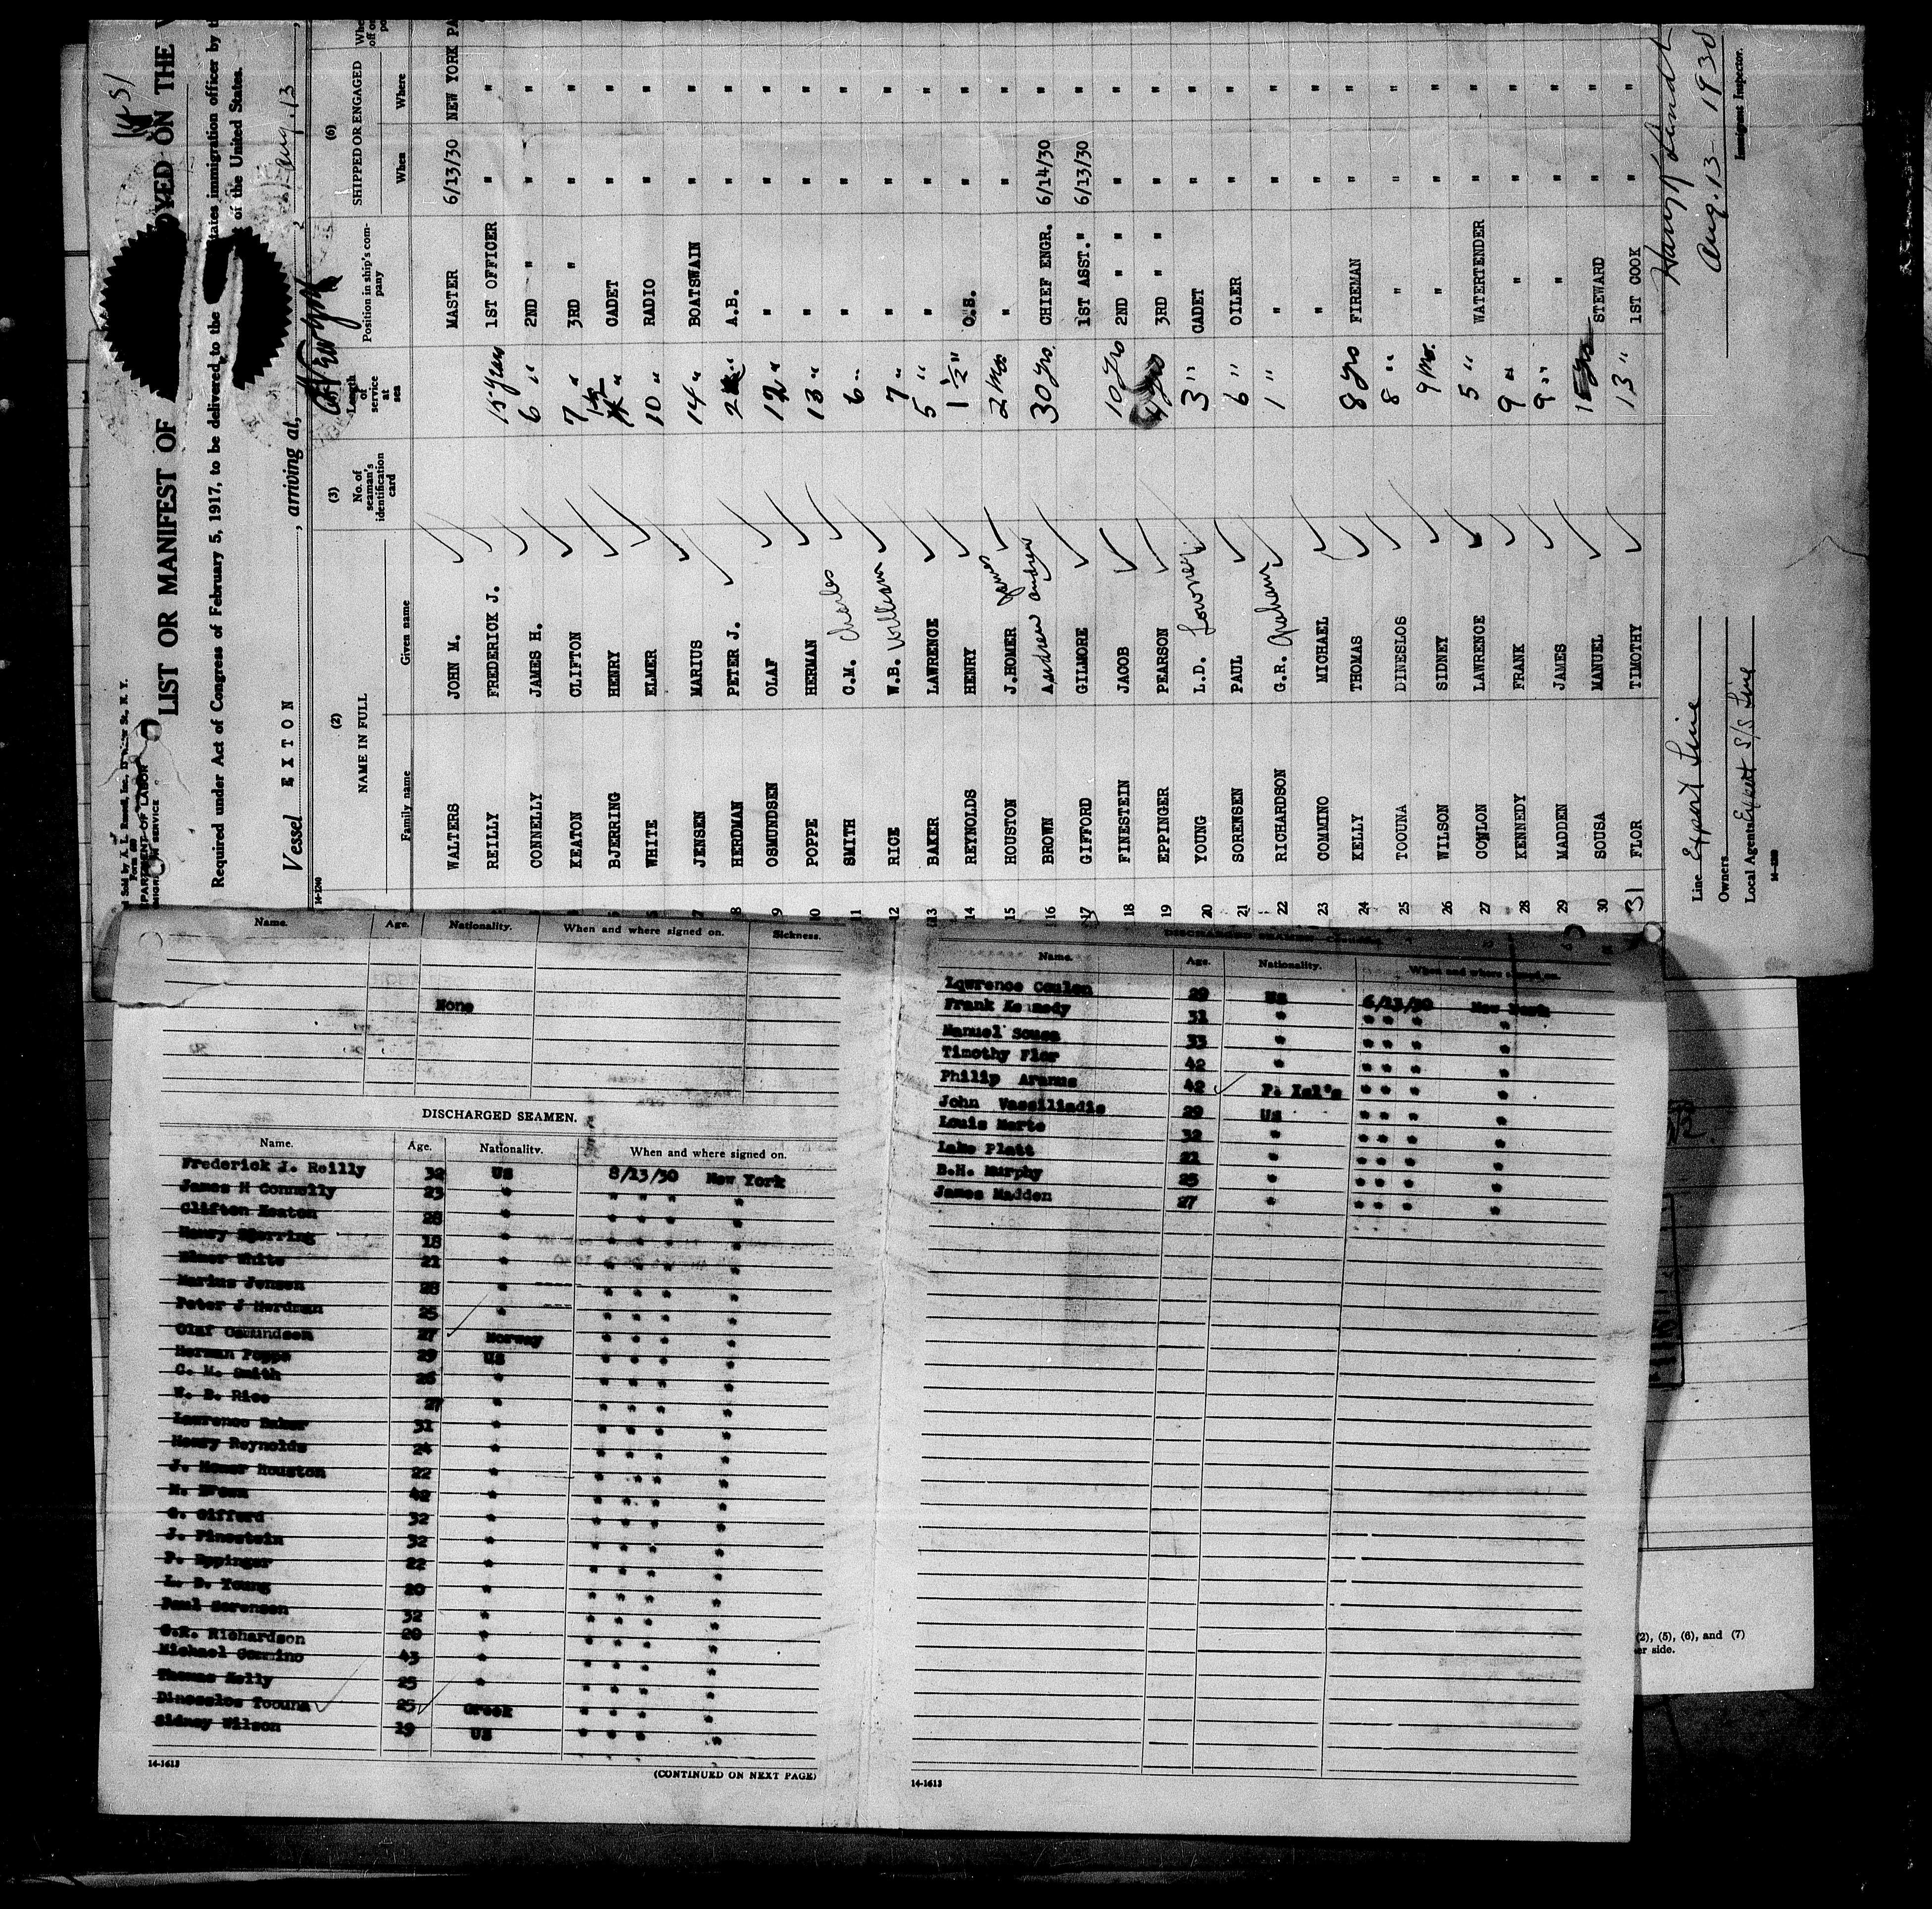 LIST OR MANIFEST OF
OYED ON THE
Required under Act of Congress of February 5, 1917, to be delivered to the
tates immigration officer by
of the United States.
Vessel EXTON , arriving at,
Aug. 13
14-1240
(2)
NAME IN FULL
Family name Given name
(3)
No. of seaman's identification card
Length of service at sea
Position in ship's company
(6)
SHIPPED OR ENGAGED
When Where
WALTERS JOHN M. MASTER 6/13/30 NEW YORK
REILLY FREDERICK J. 15 years 1ST OFFICER " "
CONNELLY JAMES H. 6 " 2ND " " "
KEATON CLIFTON 7 " 3RD " " "
BJERRING HENRY CADET " "
WHITE ELMER 10 " RADIO " "
7 JENSEN MARIUS 14 " BOATSWAIN " "
8 HERDMAN PETER J. A.B. " "
9 OSMUNDSEN OLAF 12 " " " "
10 POPPE HERMAN 13 " " " "
11 SMITH C.M. Charles 6 " " " "
12 RICE W.B. William 7 " " " "
13 BAKER LAWRENCE 5 " " " "
14 REYNOLDS HENRY 1 1/2 " O.S. " "
15 HOUSTON J.HOMER James 2 Mos " " "
16 BROWN Andrew Andrew 30 yrs. CHIEF ENGR. 6/14/30 "
17 GIFFORD GILMORE 1ST ASST." 6/13/30 "
18 FINESTEIN JACOB 10 yrs 2ND " " " "
19 EPPINGER PEARSON 3RD " " " "
20 YOUNG L.D. 3 " CADET " "
21 SORENSEN PAUL 6 " OILER " "
22 RICHARDSON G.R. Graham 1 " " " "
23 COMMINO MICHAEL " " "
24 KELLY THOMAS 8 yrs FIREMAN " "
25 TOOUNA DINESLOS 8 " " " "
26 WILSON SIDNEY 9 Mo. " " "
27 COWLON LAWRENCE 5 " WATERTENDER " "
28 KENNEDY FRANK 9 " " " "
29 MADDEN JAMES 9 " " " "
30 SOUSA MANUEL STEWARD " "
31 FLOR TIMOTHY 13 " 1ST COOK " "
Line Export Line
Owners
Local Agents Export S/S Line
Aug. 13 - 1930
Immigrant Inspector.
Name. Age. Nationality. When and where signed on. Sickness.
None
DISCHARGED SEAMEN.
Name. Age. Nationality. When and where signed on.
Frederick J. Reilly 32 US 8/13/30 New York
James H Connelly 23 " " " " "
Clifton Keaton 28 " " " " "
Henry Bjerring 18 " " " " "
Elmer White 21 " " " " "
Marius Jensen 28 " " " " "
Peter J Herdman 25 " " " " "
Olaf Osmundsen 27 Norway " " " "
Herman Poppe 29 US " " " "
C. M. Smith 26 " " " " "
W. B. Rice 27 " " " " "
Lawrence Baker 31 " " " " "
Henry Reynolds 24 " " " " "
J. Homer Houston 22 " " " " "
Brown 42 " " " " "
G. Gifford 32 " " " " "
J. Finestein 32 " " " " "
P. Eppinger 22 " " " " "
L. D. Young 20 " " " " "
Paul Sorensen 32 " " " " "
G.R. Richardson 20 " " " " "
Michael Commino 43 " " " " "
Thomas Kelly 25 " " " " "
Dinesslos Toouna 25 Greek " " " "
Sidney Wilson 19 US " " " "
14-1613
(CONTINUED ON NEXT PAGE)
DISCHARGED SEAMEN
Name. Age. Nationality. When and where signed on.
Lawrence Coulon 29 US 6/13/30 New York
Frank Kennedy 31 " " " " "
Manuel Sousa 33 " " " " "
Timothy Flor 42 " " " " "
Philip 42 P. Isl's " " " "
John Vassiliadis 29 US " " " "
Louis Marte 32 " " " " "
Lake Platt 21 " " " " "
B.H. Murphy 25 " " " " "
James Madden 27 " " " " "
14-1613
(2), (5), (6), and (7)
er side.